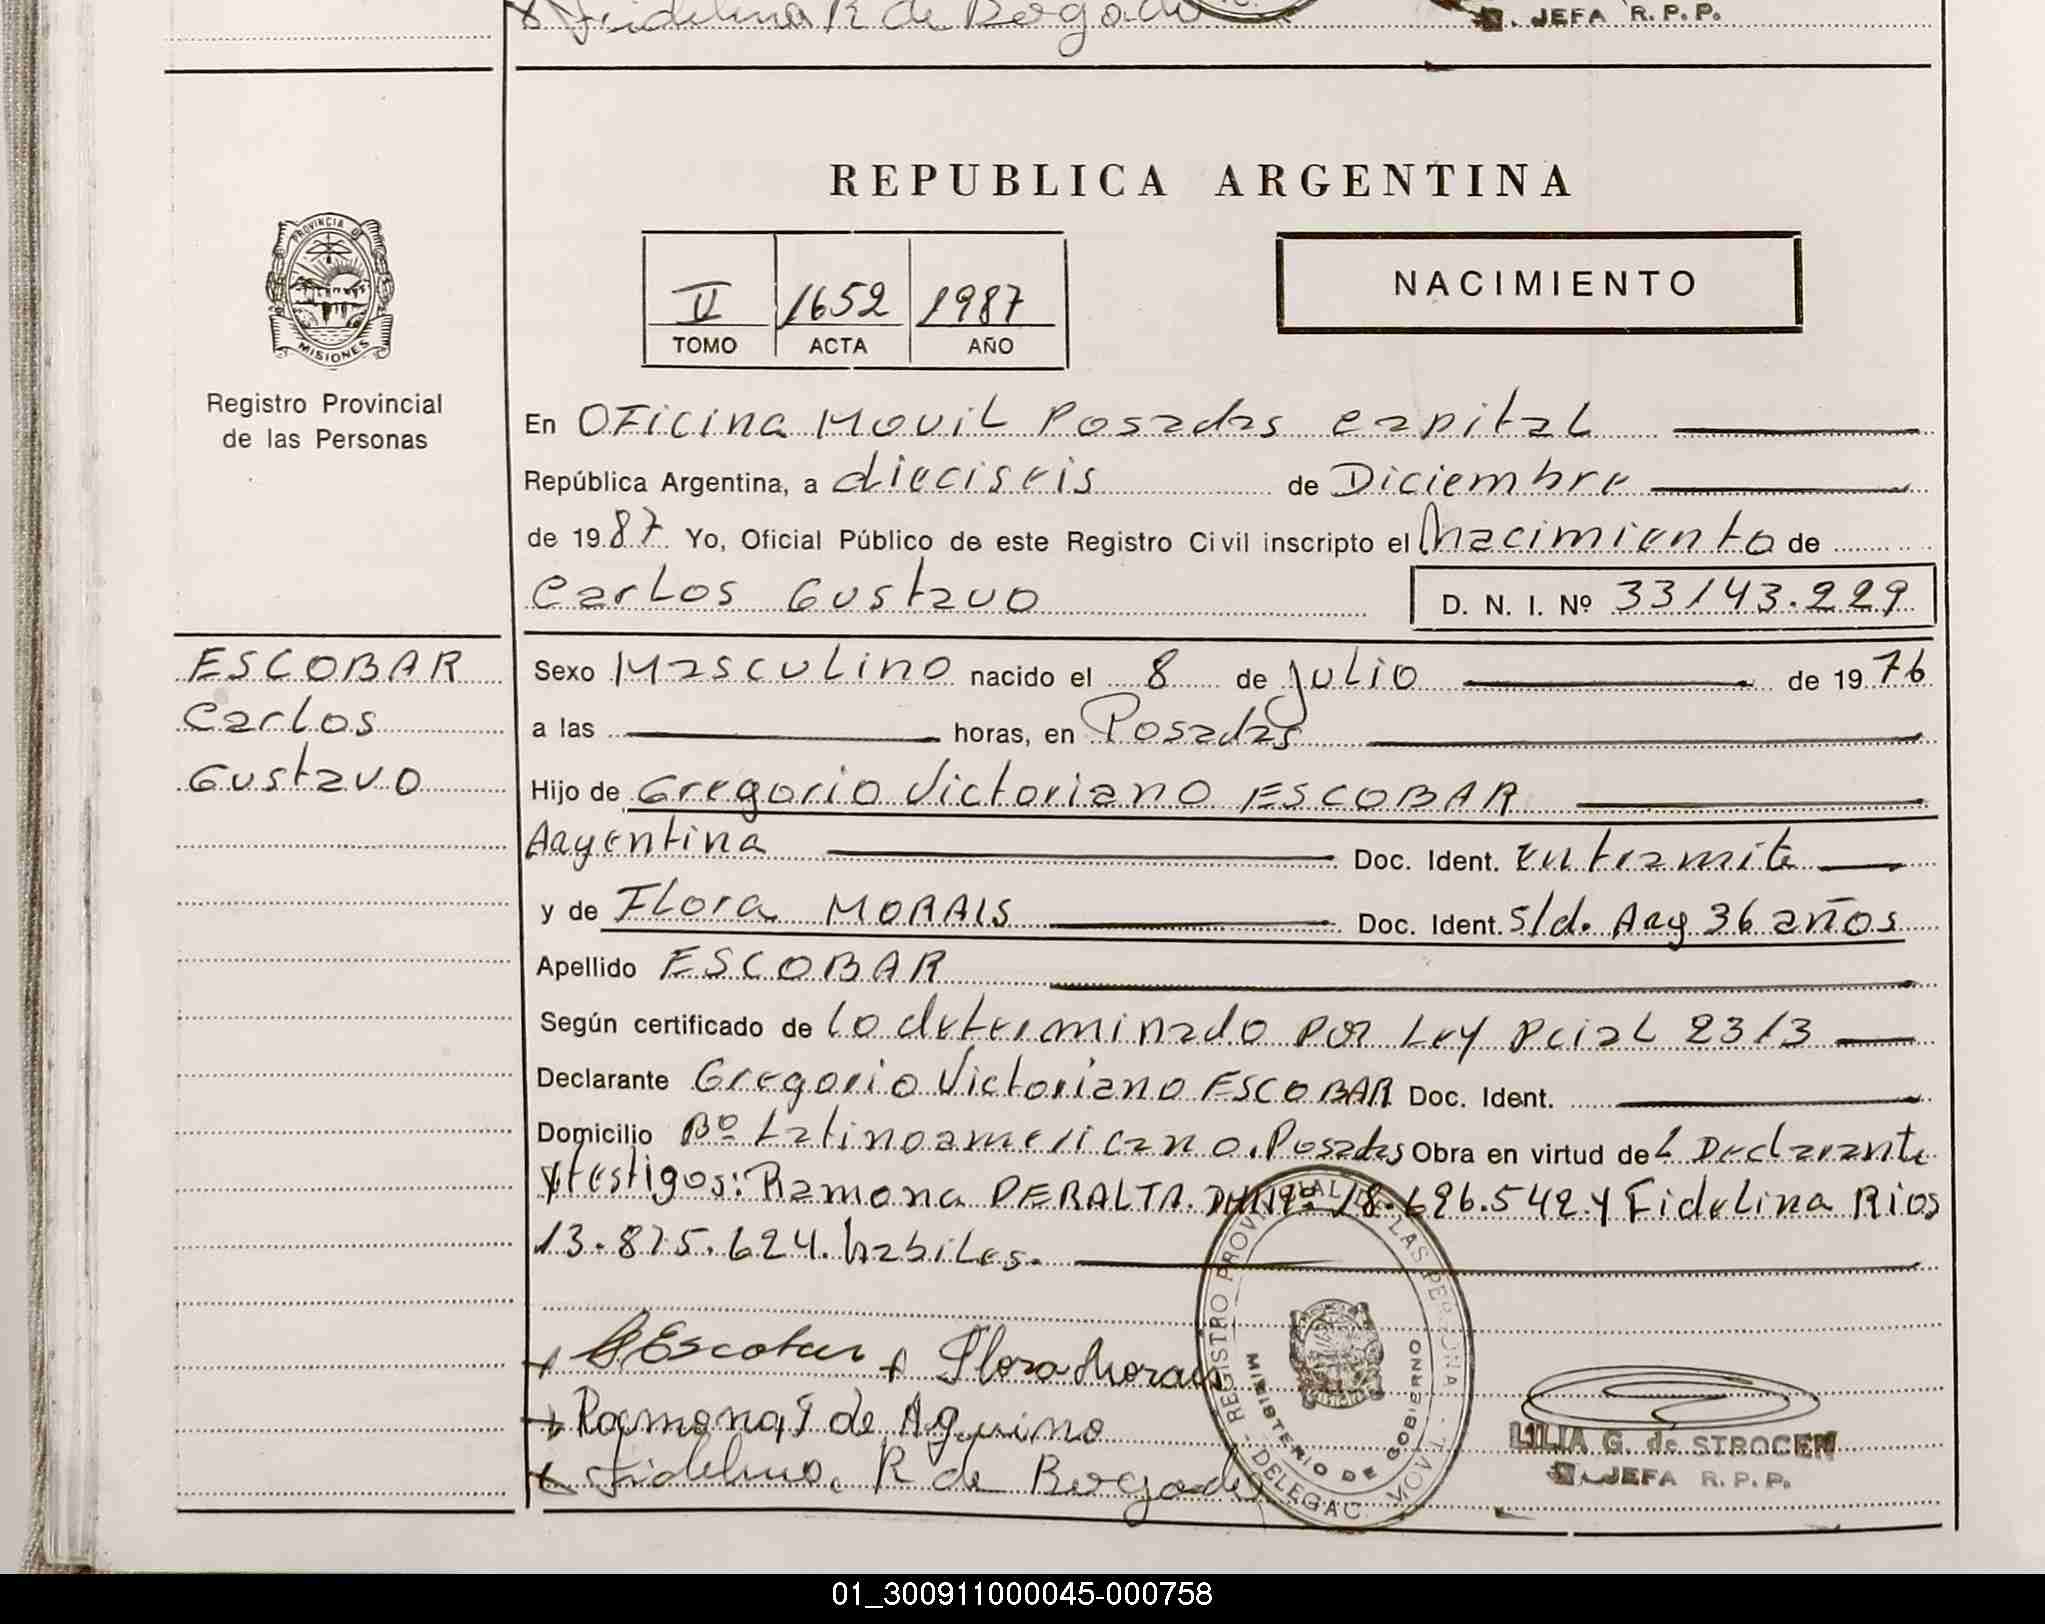 Fidelina R de Bogado
JEFA R.P.P.
PROVINCIA DE
MISIONES
Registro Provincial
de las Personas
REPUBLICA ARGENTINA
II 1652 1987
TOMO ACTA AÑO
NACIMIENTO
En OFicina Movil Posadas capital
República Argentina, a dieciseis de Diciembre
de 1987 Yo, Oficial Público de este Registro Civil inscripto el nacimiento de
Carlos Gustavo D. N. I. Nº 33143.229
ESCOBAR
Carlos
Gustavo
Sexo Masculino nacido el 8 de Julio de 1976
a las horas, en Posadas
Hijo de Gregorio Victoriano ESCOBAR
Argentina Doc. Ident. en tramite
y de Flora MORAIS Doc. Ident. s/d. Arg 36 años
Apellido ESCOBAR
Según certificado de lo determinado por Ley Pcial 2313
Declarante Gregorio Victoriano ESCOBAR Doc. Ident.
Domicilio Bº Latinoamericano. Posadas Obra en virtud de L Declarante
y testigos: Ramona PERALTA. DNI Nº 18.696.542 y Fidelina Rios
13.875.624. habiles.
Escobar Flora Morais
Ramona P de Aquino
Fidelina R de Bogado
REGISTRO PROVINCIAL DE LAS PERSONAS
MINISTERIO DE GOBIERNO
DELEGAC. MOVIL
LILIA G. de STROCEN
JEFA R.P.P.
01_300911000045-000758